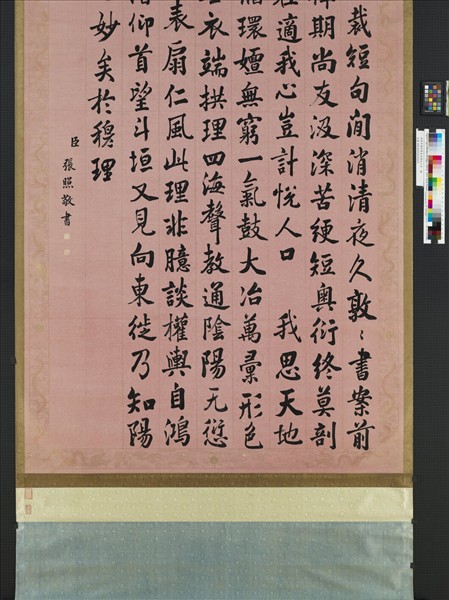 裁短句閒消清夜久敦〻書案前
期尚友汲深苦綆短奧衍終莫剖
適我心豈計悅人口 我思天地
環嬗無窮一氣鼓大冶萬彙形色
衣端拱理四海聲教通陰陽无愆
表扇仁風此理非臆談權輿自鴻
仰首望斗垣又見向東徙乃知陽
妙矣於穆理
臣張照敬書